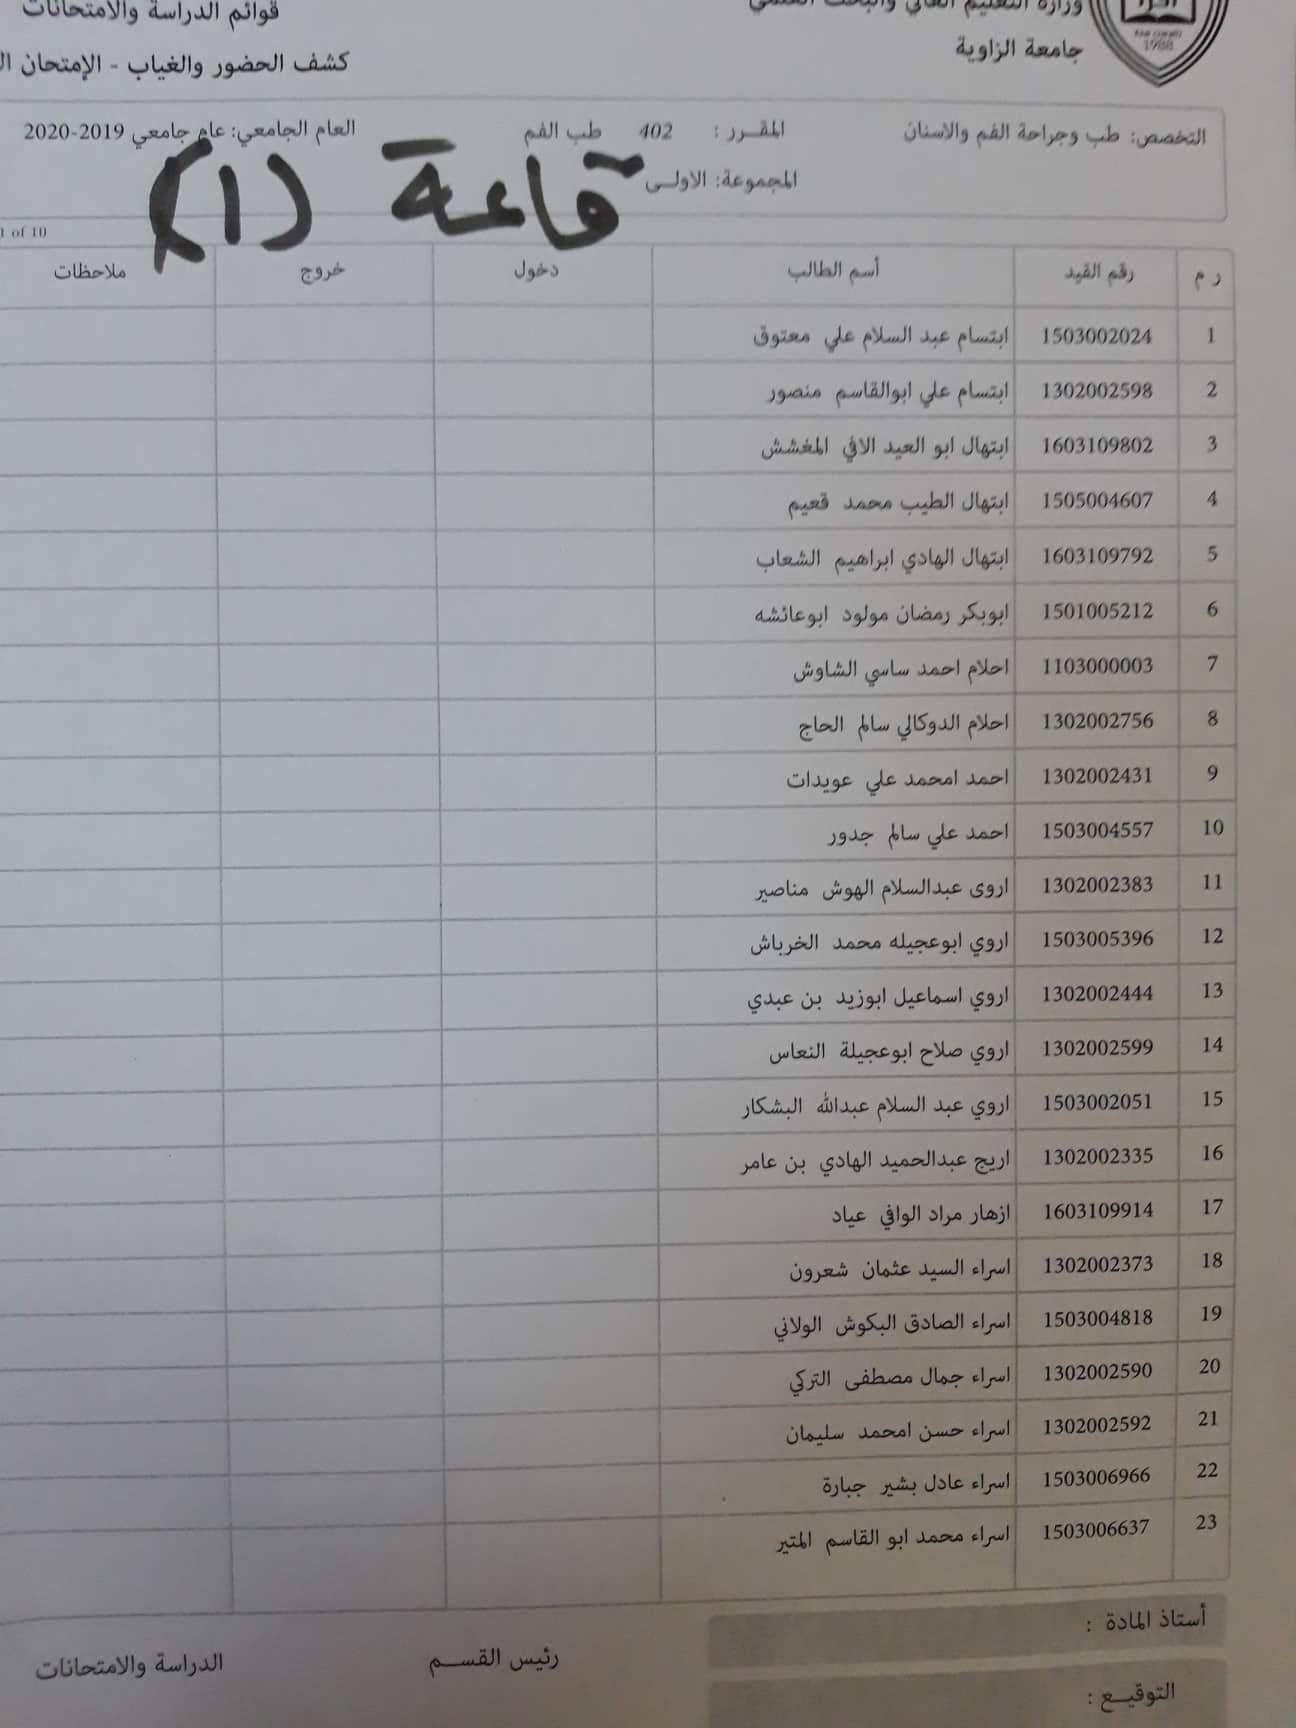 وزارة التعليم العالي والبحث العلمي
جامعة الزاوية
1988
قوائم الدراسة والامتحانات
كشف الحضور والغياب - الإمتحان
التخصص: طب وجراحة الفم والاسنان المقـرر : 402 طب الفم العام الجامعي: عام جامعي 2019-2020
المجموعة: الاولـى
قاعة (1)
1 of 10
ر م رقم القيد أسم الطالب دخول خروج ملاحظات
1 1503002024 ابتسام عبد السلام علي معتوق
2 1302002598 ابتسام علي ابوالقاسم منصور
3 1603109802 ابتهال ابو العيد الافي المغشش
4 1505004607 ابتهال الطيب محمد قعيم
5 1603109792 ابتهال الهادي ابراهيم الشعاب
6 1501005212 ابوبكر رمضان مولود ابوعائشه
7 1103000003 احلام احمد ساسي الشاوش
8 1302002756 احلام الدوكالي سالم الحاج
9 1302002431 احمد امحمد علي عويدات
10 1503004557 احمد علي سالم جدور
11 1302002383 اروى عبدالسلام الهوش مناصير
12 1503005396 اروي ابوعجيله محمد الخرباش
13 1302002444 اروي اسماعيل ابوزيد بن عبدي
14 1302002599 اروي صلاح ابوعجيلة النعاس
15 1503002051 اروي عبد السلام عبدالله البشكار
16 1302002335 اريج عبدالحميد الهادي بن عامر
17 1603109914 ازهار مراد الوافي عياد
18 1302002373 اسراء السيد عثمان شعرون
19 1503004818 اسراء الصادق البكوش الولاني
20 1302002590 اسراء جمال مصطفى التركي
21 1302002592 اسراء حسن امحمد سليمان
22 1503006966 اسراء عادل بشير جبارة
23 1503006637 اسراء محمد ابو القاسم المتير
أستاذ المادة :
رئيس القســم الدراسة والامتحانات
التوقيـع :